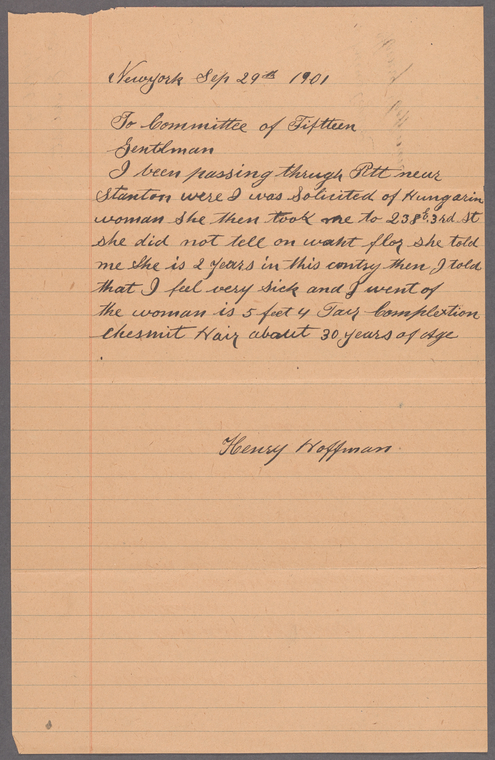 Newyork Sep 29th 1901
To Committee of Fifteen
Gentlman
I been passing thrugh Pitt near
Stanton were I was Solicited of Hungarin
woman She then took me to 238 E 3rd. St
she did not tell on waht flor she told
me she is 2 years in this contry then I told
that I feel very sick and I went of
the woman is 5 feet 4 Fair Complextion
Chesnut Hair about 30 years of age
Henry Hoffman